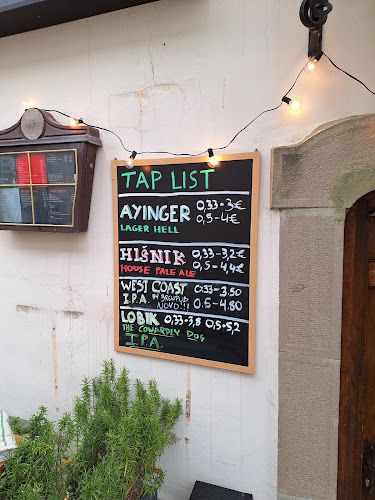 TAP LIST
AYINGER 0,33-3€
0,5-4€
LAGER HELL
HIŠNIK 0,33-3,2€
HOUSE PALE ALE 0,5-4,4€
WEST COAST 0.33-3.50
I.P.A. BY BREWPUB 0.5-4.80
NOVO!!!
LOBIK 0,33-3,8 0,5-5,2
THE COWARDLY DOG
I.P.A.